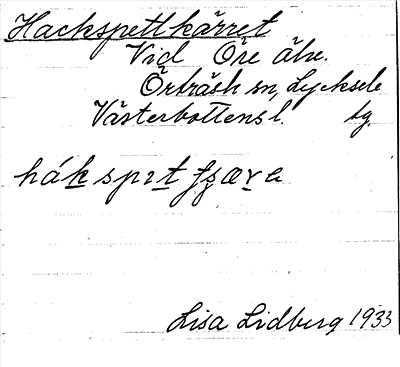 Hackspettkärret
Vid Öre älv.
Örträsk sn, Lycksele
Västerbottens l. tg.
hákspɪt fʂærɐ
Lisa Lidberg 1933